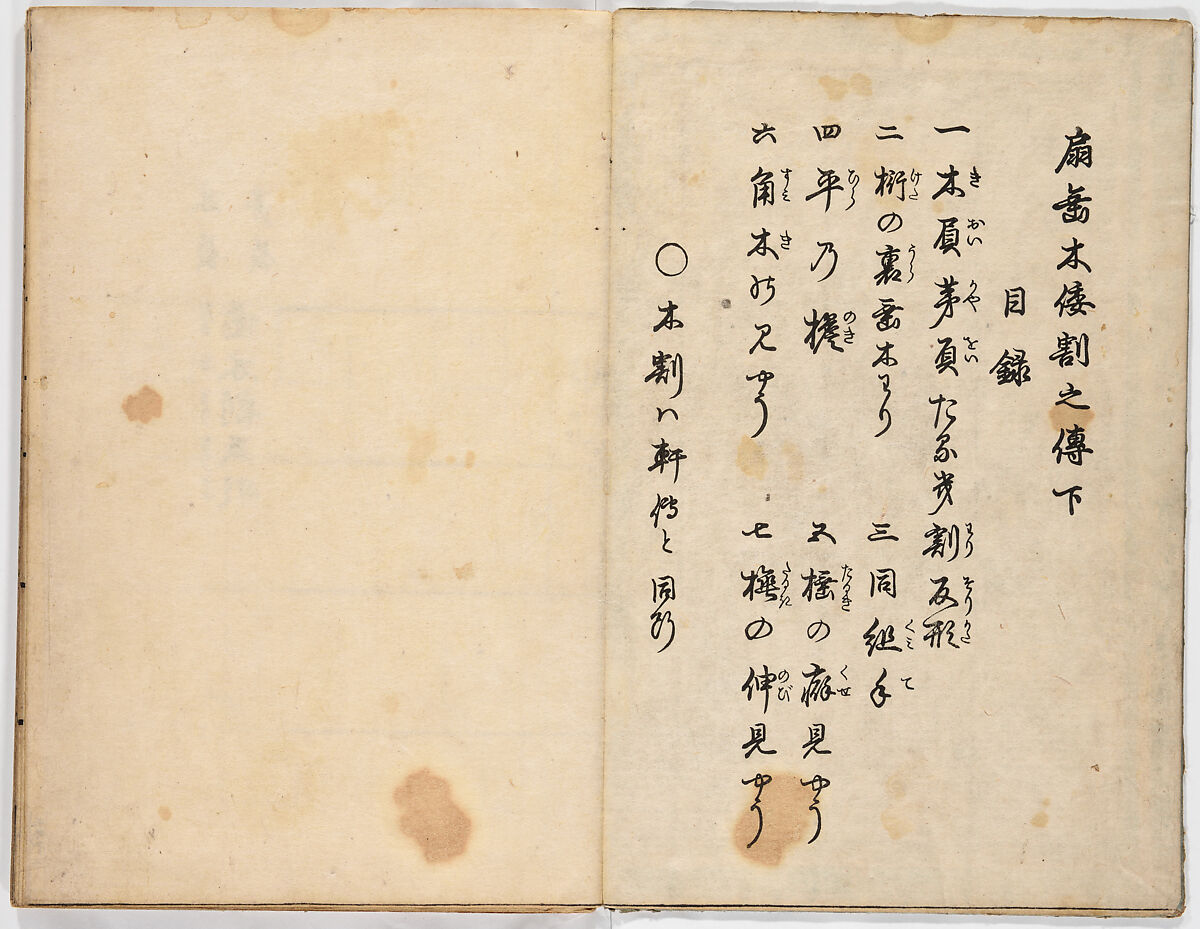 扇垂木倭割之傳下
目録
一 木負茅負たるき割反形
二 桁の裏垂木わり
三 同組手
四 平乃檐
五 の癖見やう
六 角木の見やう
七 の伸見やう
○木割ハ軒傳と同断